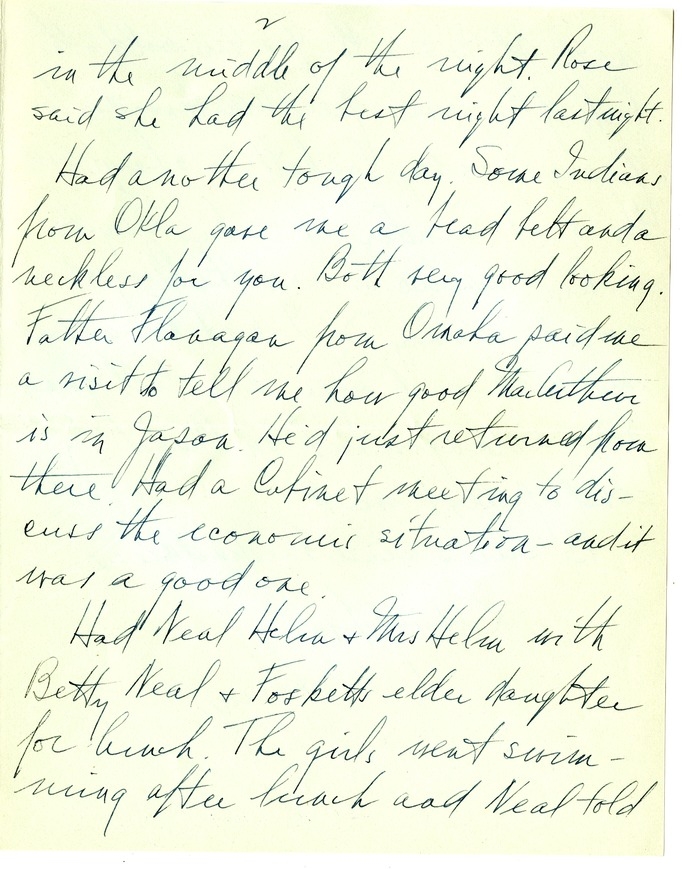 2
in the middle of the night. Rose
said she had the best night last night.
Had another tough day. Some Indians
from Okla gave me a bead belt and a
neckless for you. Both very good looking.
Father Flanagan from Omaha paid me
a visit to tell me how good MacArthur
is in Japan. He'd just returned from
there. Had a Cabinet meeting to dis-
cuss the economic situation - and it
was a good one.
Had Neal Helm & Mrs Helm with
Betty Neal & Fosketts elder daughter
for lunch. The girls went swim-
ming after lunch and Neal told